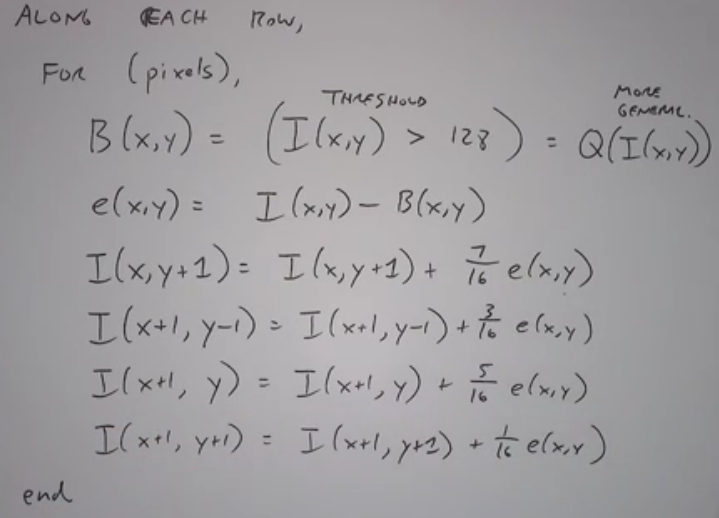 ALONG EACH ROW,
FOR (pixels),
THRESHOLD
MORE
GENERAL.
B(x,y) = (I(x,y) > 128) = Q(I(x,y))
e(x,y) = I(x,y) - B(x,y)
I(x,y+1) = I(x,y+1) + 7/16 e(x,y)
I(x+1, y-1) = I(x+1, y-1) + 3/16 e(x,y)
I(x+1, y) = I(x+1, y) + 5/16 e(x,y)
I(x+1, y+1) = I(x+1, y+1) + 1/16 e(x,y)
end